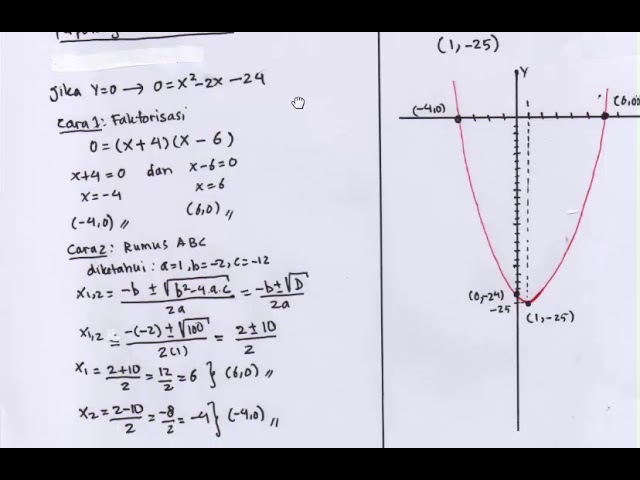 Jika Y=0 → 0=x²-2x-24
Cara 1: Faktorisasi
0=(x+4)(x-6)
x+4=0 dan x-6=0
x=-4 x=6
(-4,0) ,, (6,0) ,,
Cara 2: Rumus ABC
diketahui: a=1, b=-2, c=-12
x₁,₂ = (-b ± √(b²-4.a.c))/2a = (-b±√D)/2a
x₁,₂ = (-(-2) ± √100)/2(1) = (2±10)/2
x₁ = (2+10)/2 = 12/2 = 6 } (6,0) ,,
x₂ = (2-10)/2 = -8/2 = -4 } (-4,0) ,,
(1,-25)
Y
(-4,0)
(0,-24)
-25
(1,-25)